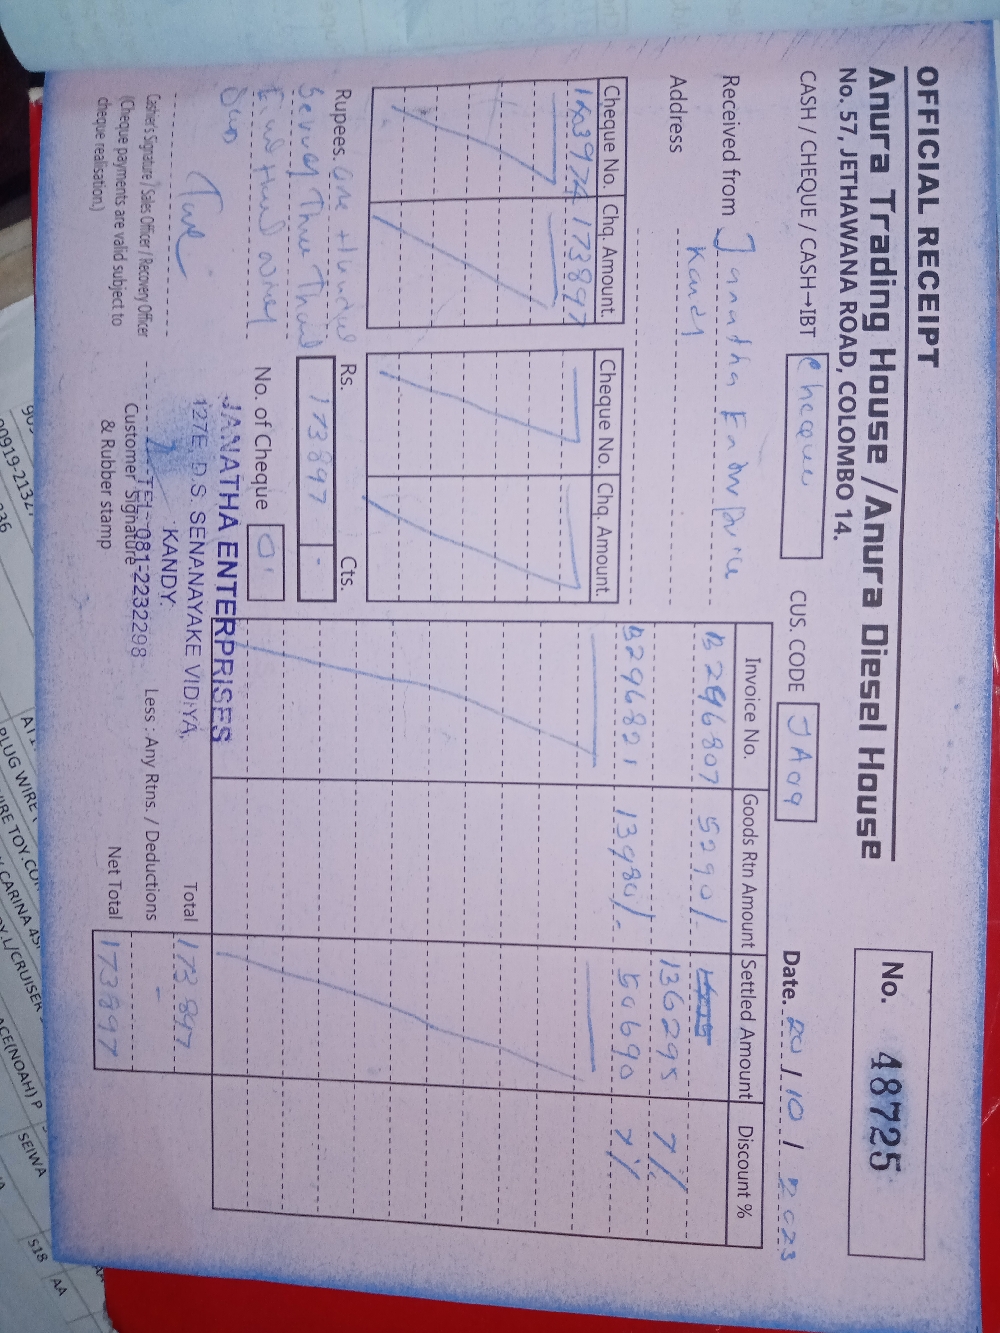 OFFICIAL RECEIPT
Anura Trading House / Anura Diesel House
No. 57, JETHAWANA ROAD, COLOMBO 14.
No. 48725
CASH / CHEQUE / CASH→IBT Cheque
CUS. CODE JA09
Date. 20 / 10 / 2023
Received from Janatha
Address Kandy
Cheque No. Chq. Amount. Cheque No. Chq. Amount.
173897
Invoice No. Goods Rtn Amount Settled Amount Discount %
B296807 5290/-
136295 7%
B296821 13980/- 7%
Rupees. One Hundred
Seventy Three
Rs. Cts.
173897 -
No. of Cheque 01
JANATHA ENTERPRISES
127E, D.S. SENANAYAKE VIDIYA,
KANDY.
TEL: 081-2232298
Cashier's Signature / Sales Officer / Recovery Officer
(Cheque payments are valid subject to
cheque realisation.)
Customer Signature
& Rubber stamp
Total 173897
Less : Any Rtns. / Deductions -
Net Total 173897
PLUG WIRE
SEIWA
S18
AA